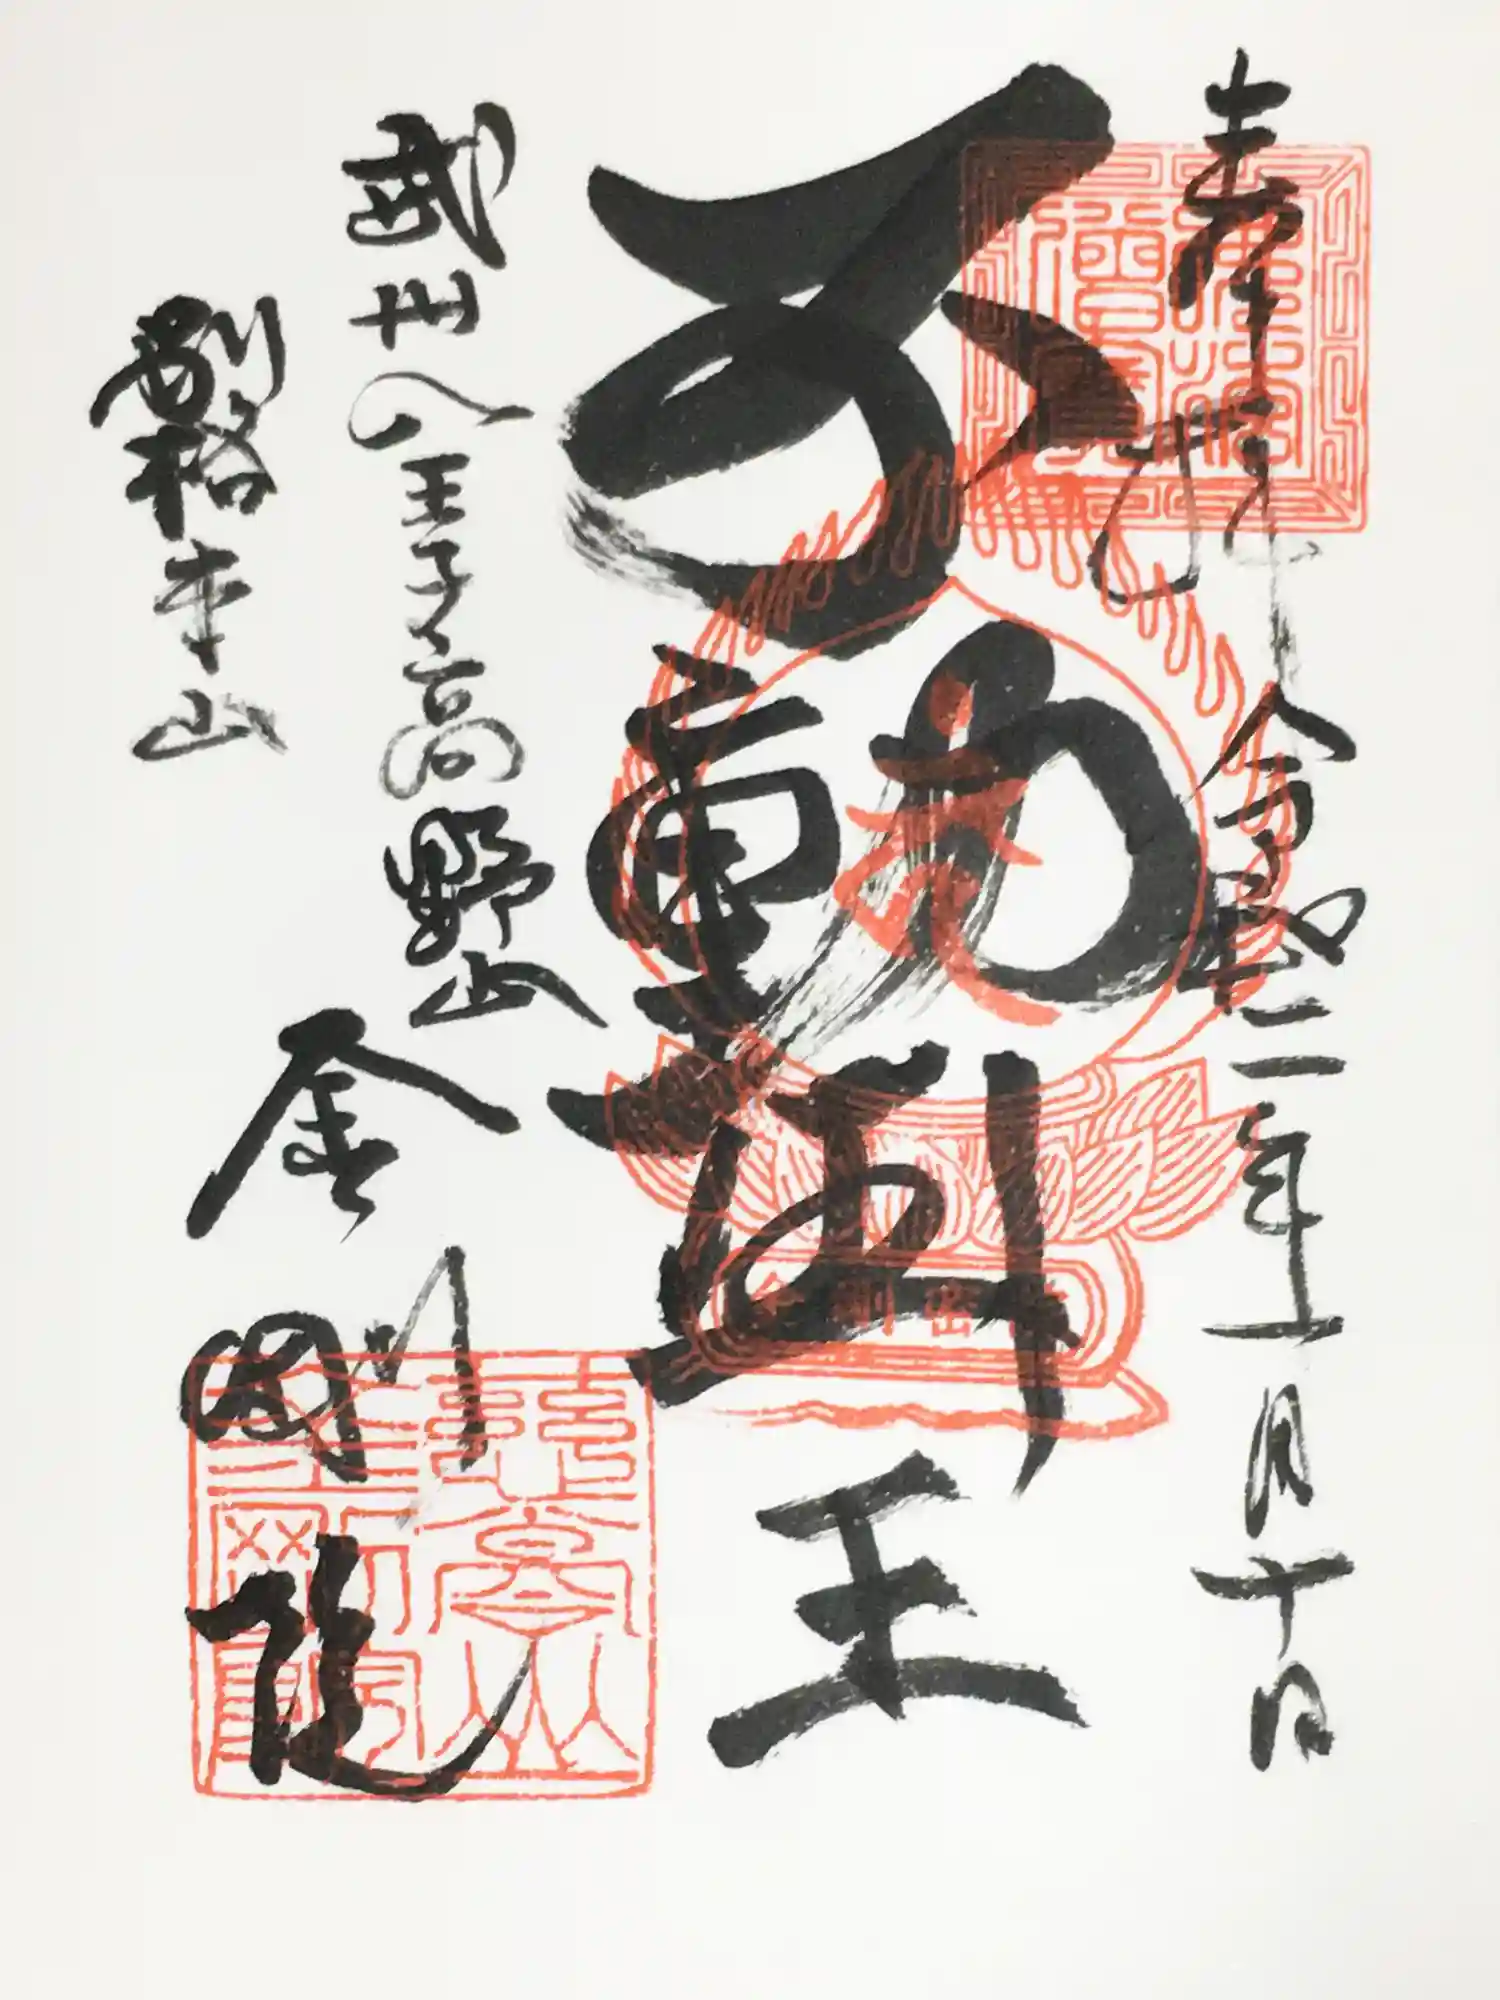 奉拝 令和二年一月十日
不動明王
武州八王子高野山
別格本山
金剛院